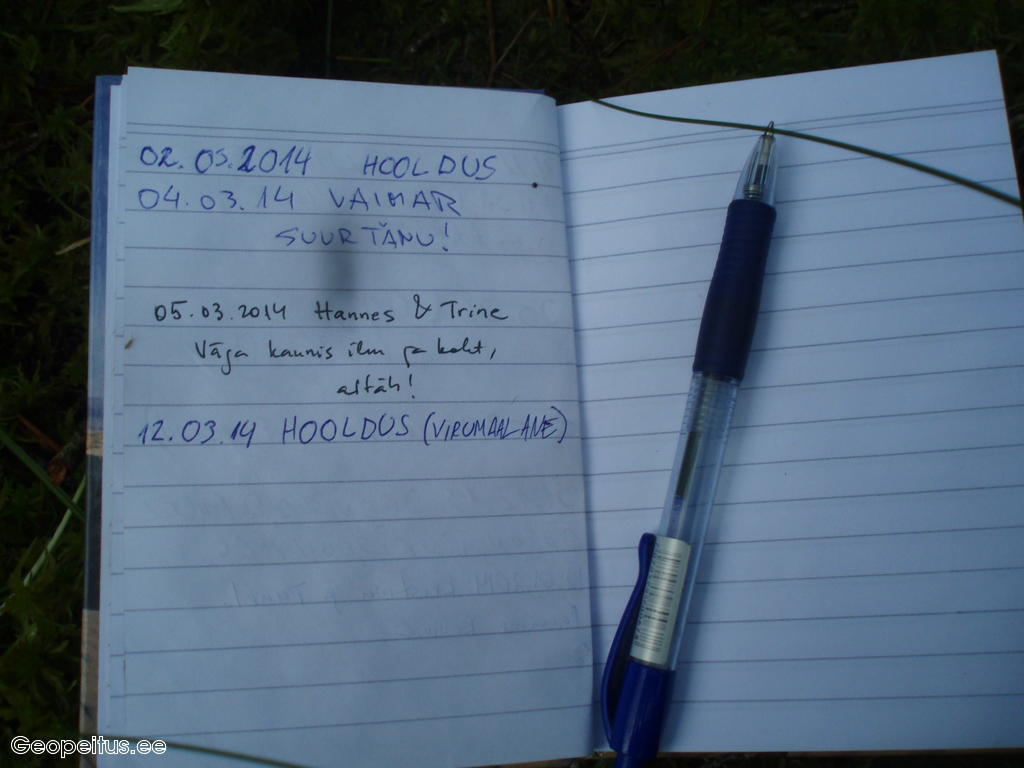 02.03.2014 HOOLDUS
04.03.14 VAIMAR
SUUR TÄNU!
05.03.2014 Hannes & Trine
Väga kaunis ilm ja koht,
aitäh!
12.03.14 HOOLDUS (VIRUMAALANE)
Geopeitus.ee